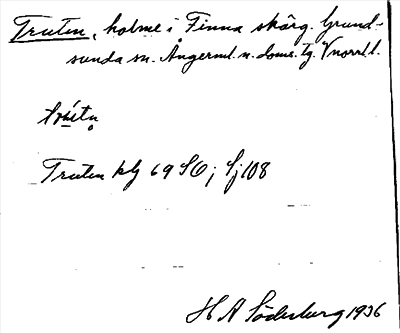 Truten, holme i Finna skärg. Grund-
sunda sn. Ångerml. n. doms. tg. Vnorrl. l.
Truten kbg 69 SO; Sj 108
H A Söderberg 1936